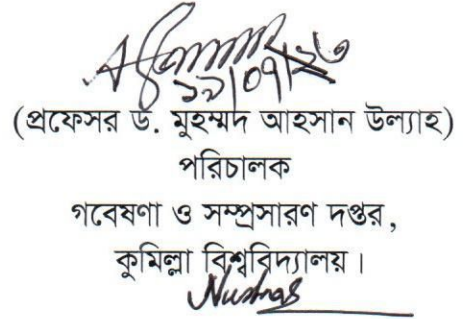 ১৯/০৭/২৩
(প্রফেসর ড. মুহম্মদ আহসান উল্যাহ)
পরিচালক
গবেষণা ও সম্প্রসারণ দপ্তর,
কুমিল্লা বিশ্ববিদ্যালয়।